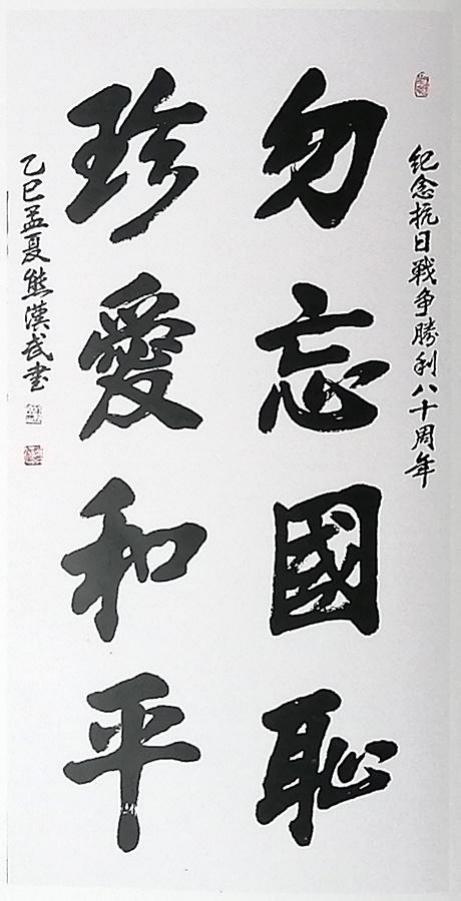 纪念抗日戰争勝利八十周年
勿忘國恥
珍愛和平
乙巳孟夏熊漢武書